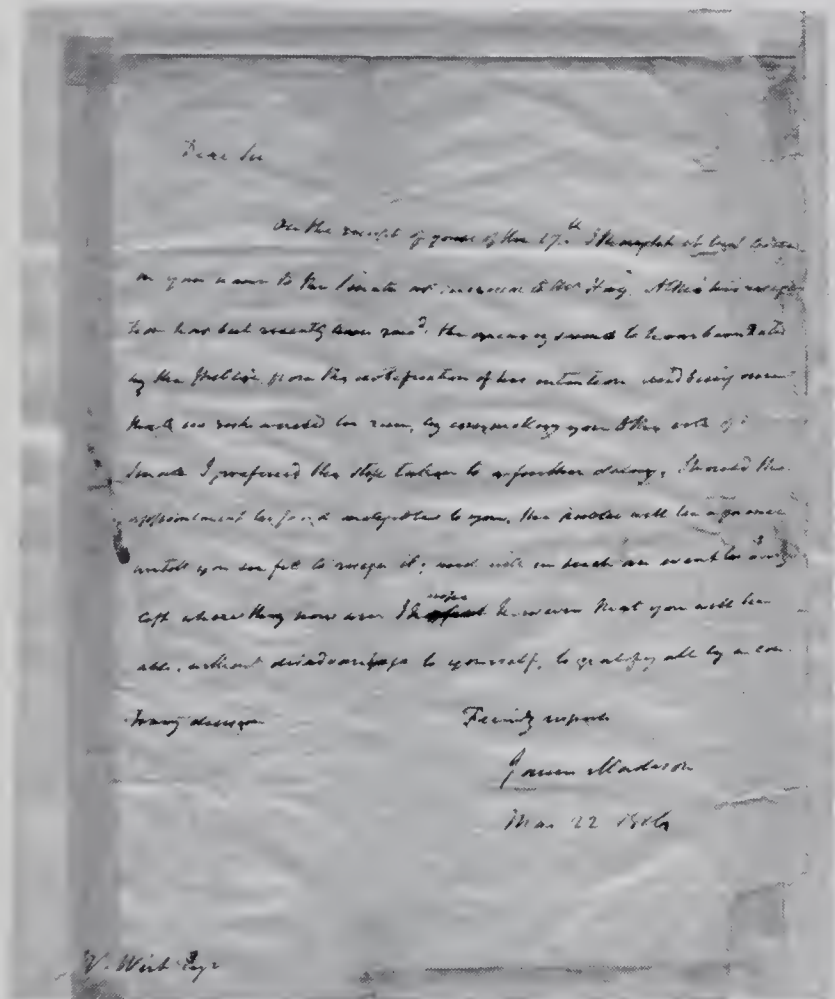 Dear Sir
On the receipt of yours of the 17.th I thought it best to
in your name to the Senate as successor to Mr Hay. Altho' his
has but recently been recd. the vacancy seemed to have been dated
by the Public from the notification of his intention and being
that no risk would be run, by
Senate I preferred the step taken to a further delay. Should the
appointment be found unacceptable to you, the
untill you see fit to resign it; and will in such an event be
left where they now are. I hope however that you will be
able, without disadvantage to yourself, to gratify all by a con-
trary decision
Friendly respects
James Madison
Mar. 22 1816
W. Wirt Esqr